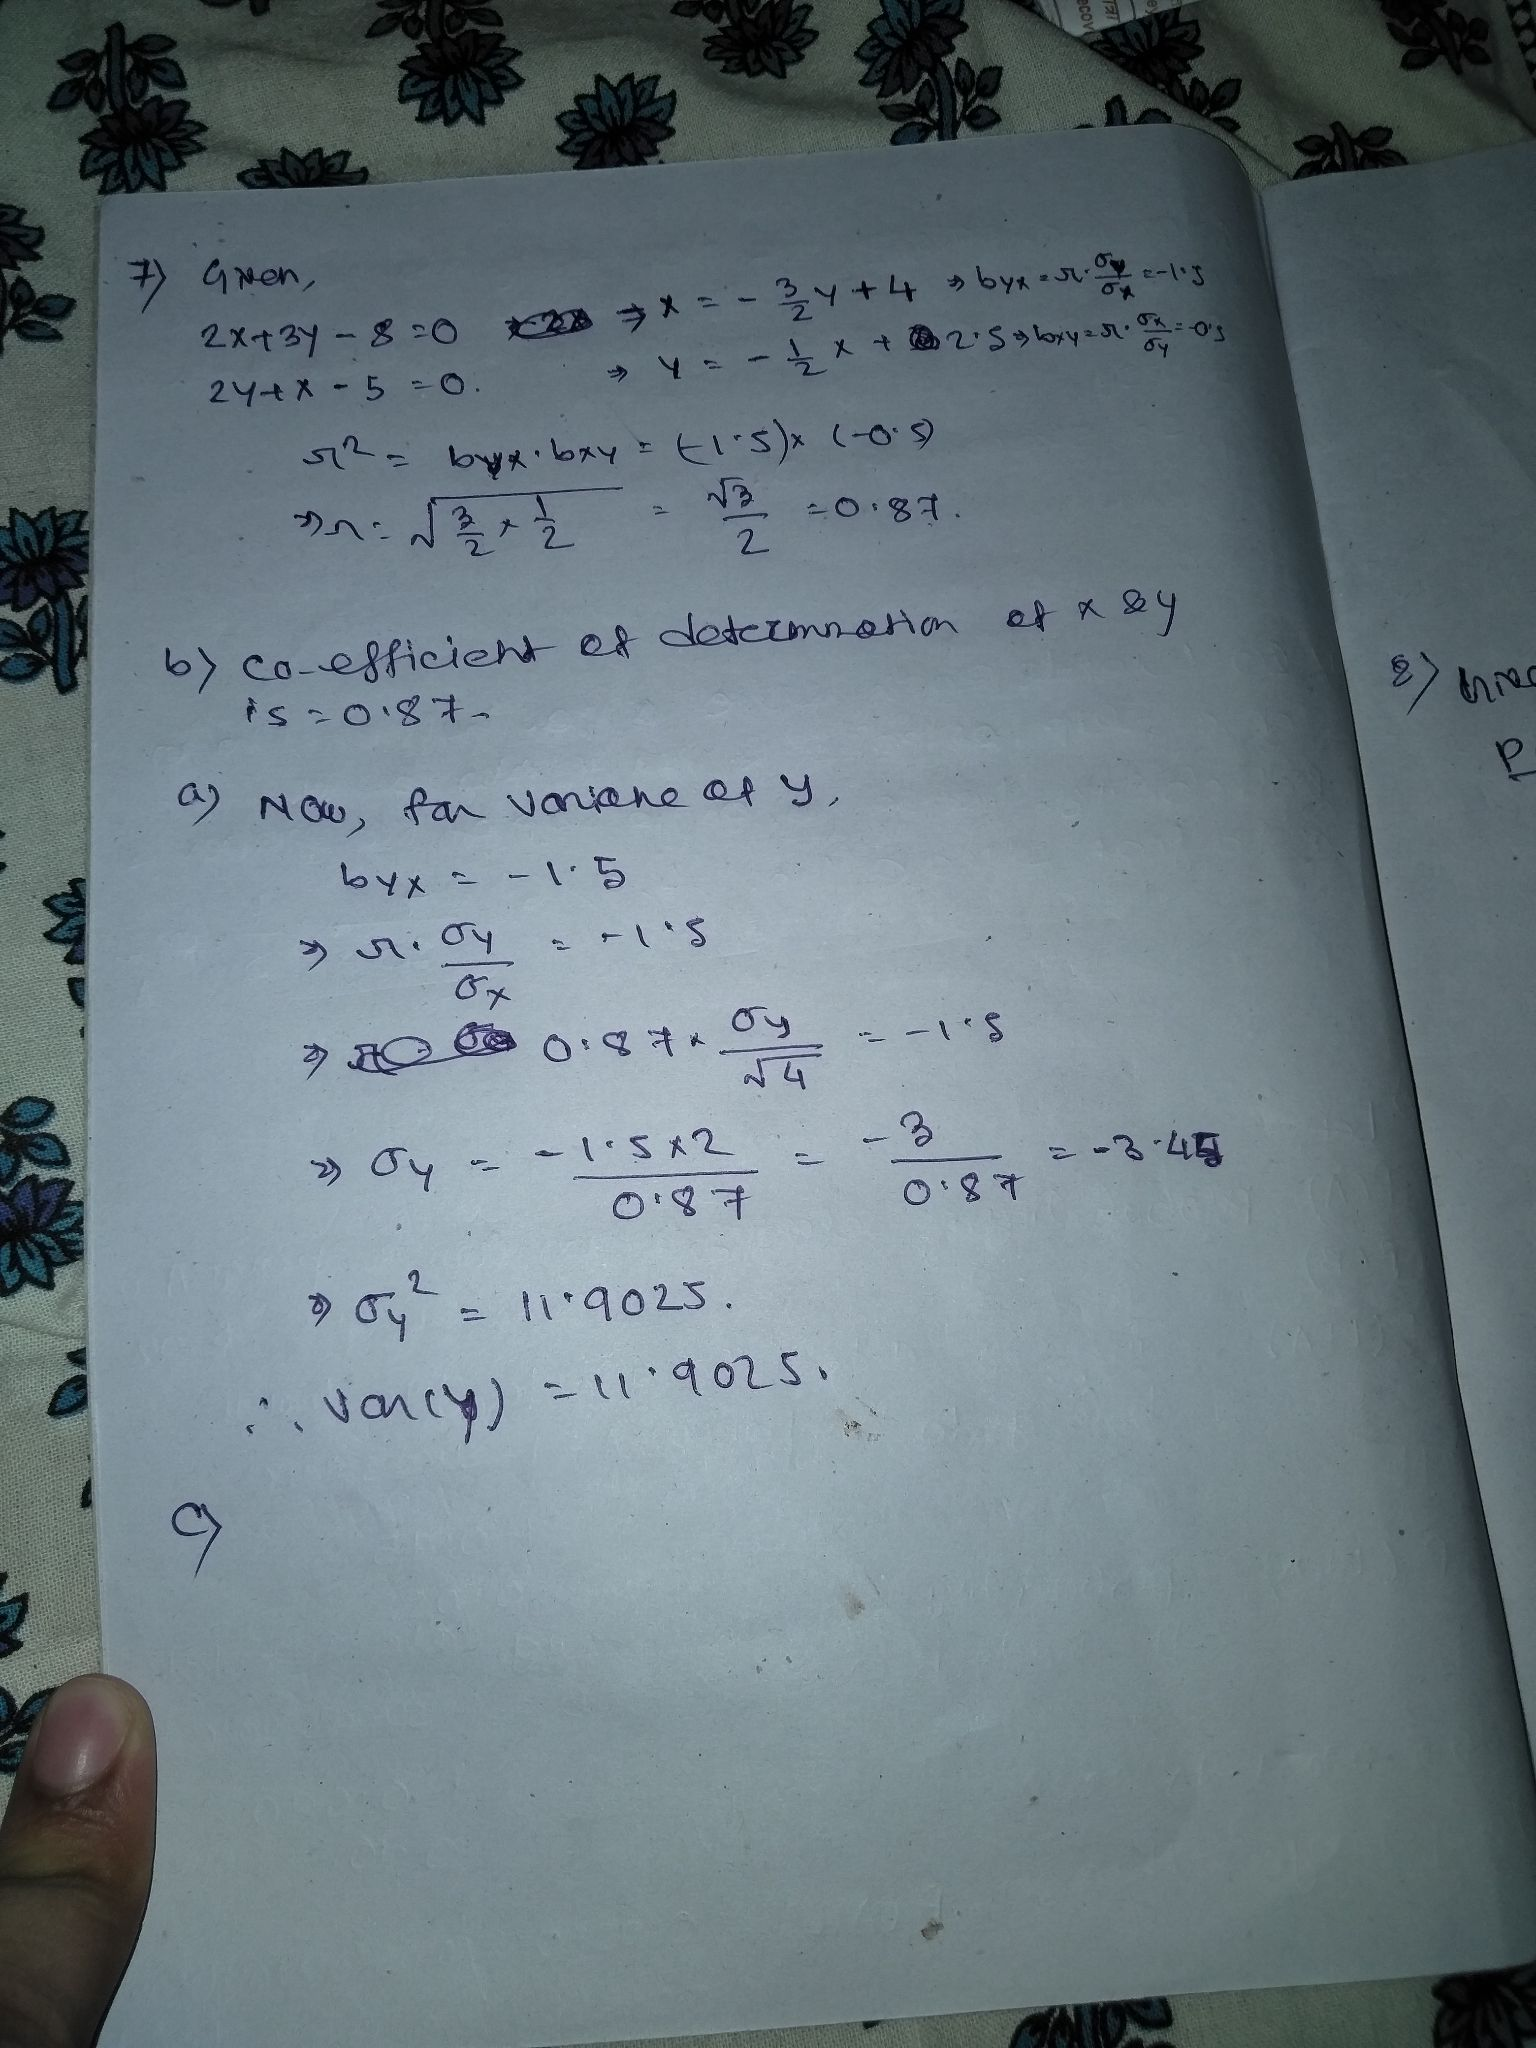 7) Given,
2x+3y-8=0 ⇒ x = -3/2 y + 4 ⇒ byx = r. σy/σx = -1.5
2y+x-5=0. ⇒ y = -1/2 x + 2.5 ⇒ bxy = r. σx/σy = -0.5
r² = byx.bxy = (-1.5)x (-0.5)
⇒ r = √(3/2 x 1/2) = √3/2 = 0.87.
b) co-efficient of determination of x & y
is = 0.87.
a) Now, for variane of y,
byx = -1.5
⇒ r. σy/σx = -1.5
⇒ 0.87 x σy/√4 = -1.5
⇒ σy = -1.5x2/0.87 = -3/0.87 = -3.45
⇒ σy² = 11.9025.
∴ Var(y) = 11.9025.
c)
8)
P